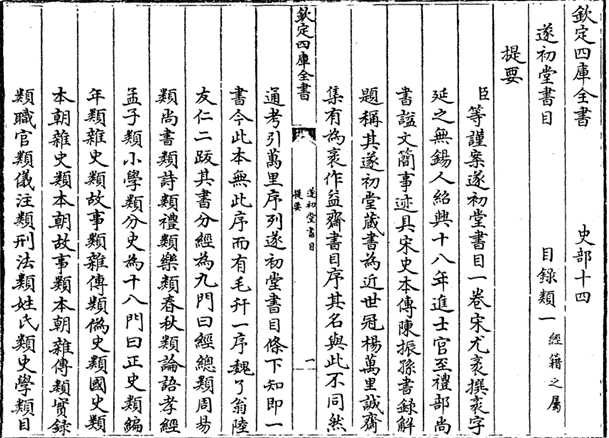 欽定四庫全書 史部十四
遂初堂書目 目録類一 經籍之屬
提要
臣等謹案遂初堂書目一卷宋尤袤撰袤字
延之無錫人紹興十八年進士官至禮部尚
書諡文簡事迹具宋史本傳陳振孫書録解
題稱其遂初堂藏書為近世冠楊萬里誠齋
集有為袤作益齋書目序其名與此不同然
欽定四庫全書
遂初堂書目
提要
一
通考引萬里序列遂初堂書目條下知即一
書今此本無此序而有毛幵一序魏了翁陸
友仁二跋其書分經為九門曰經總類周易
類尚書類詩類禮類樂類春秋類論語孝經
孟子類小學類分史為十八門曰正史類編
年類雜史類故事類雜傳類偽史類國史類
本朝雜史類本朝故事類本朝雜傳類實録
類職官類儀注類刑法類姓氏類史學類目